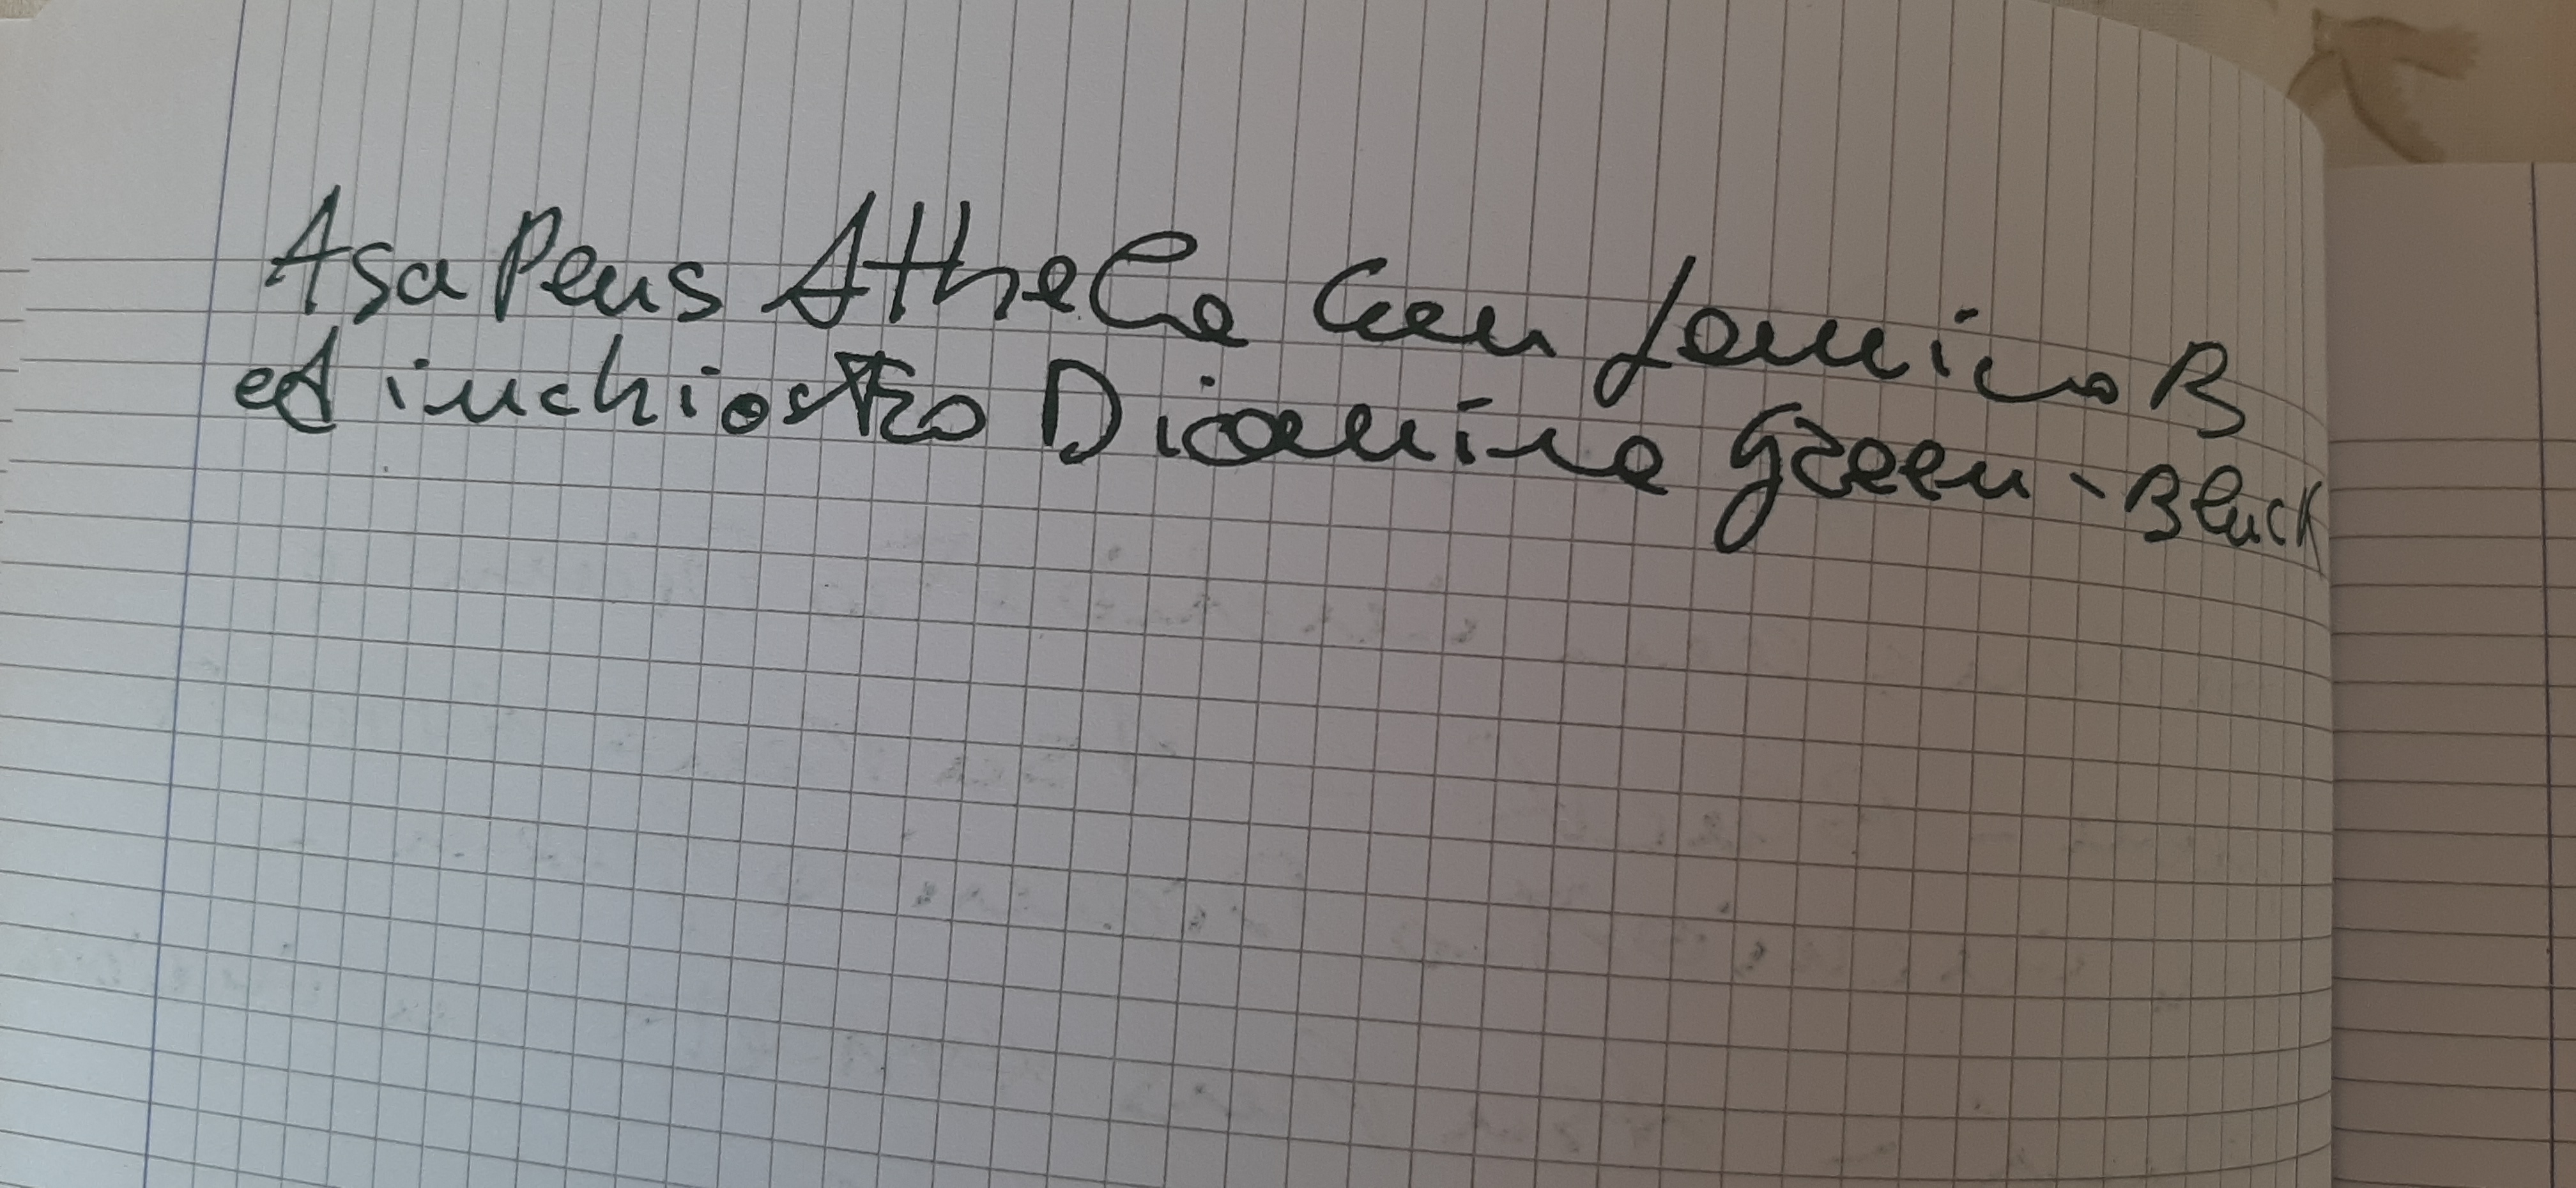 Asa Pens Athela con pennino B
ed inchiostro Diamine Green-Black